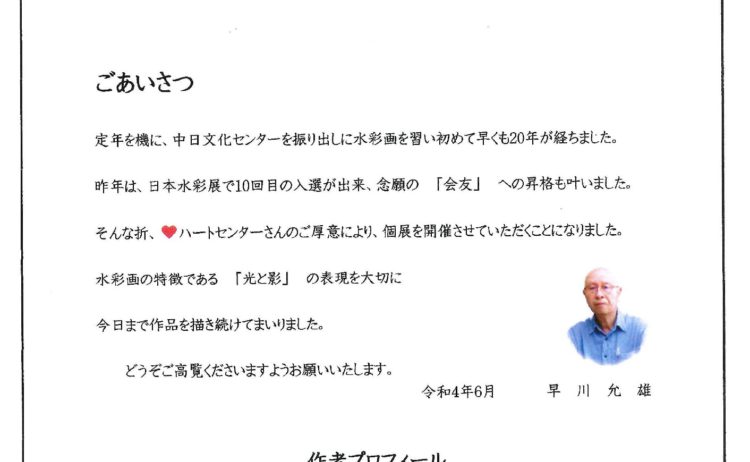 ごあいさつ
定年を機に、中日文化センターを振り出しに水彩画を習い初めて早くも20年が経ちました。
昨年は、日本水彩展で10回目の入選が出来、念願の 「会友」 への昇格も叶いました。
そんな折、❤ハートセンターさんのご厚意により、個展を開催させていただくことになりました。
水彩画の特徴である 「光と影」 の表現を大切に
今日まで作品を描き続けてまいりました。
どうぞご高覧くださいますようお願いいたします。
令和4年6月 早 川 允 雄
作者プロフィール